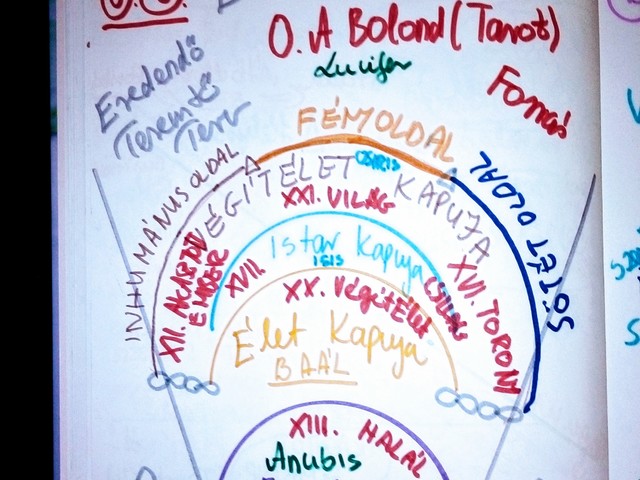 0. A Bolond (Tarot)
Lucifer
Eredendő
Teremtő
Terv
Forrás
FÉMOLDAL
INHUMÁNUS OLDAL
SÖTÉT OLDAL
VÉGÍTÉLET KAPUJA
OSIRIS
XXI. VILÁG
XII. AKASZTOTT
EMBER
XVI. TORONY
Istar Kapuja
ISIS
XVII. CSILLAG
XX. Végítélet
Élet Kapuja
BAÁL
XIII. HALÁL
Anubis